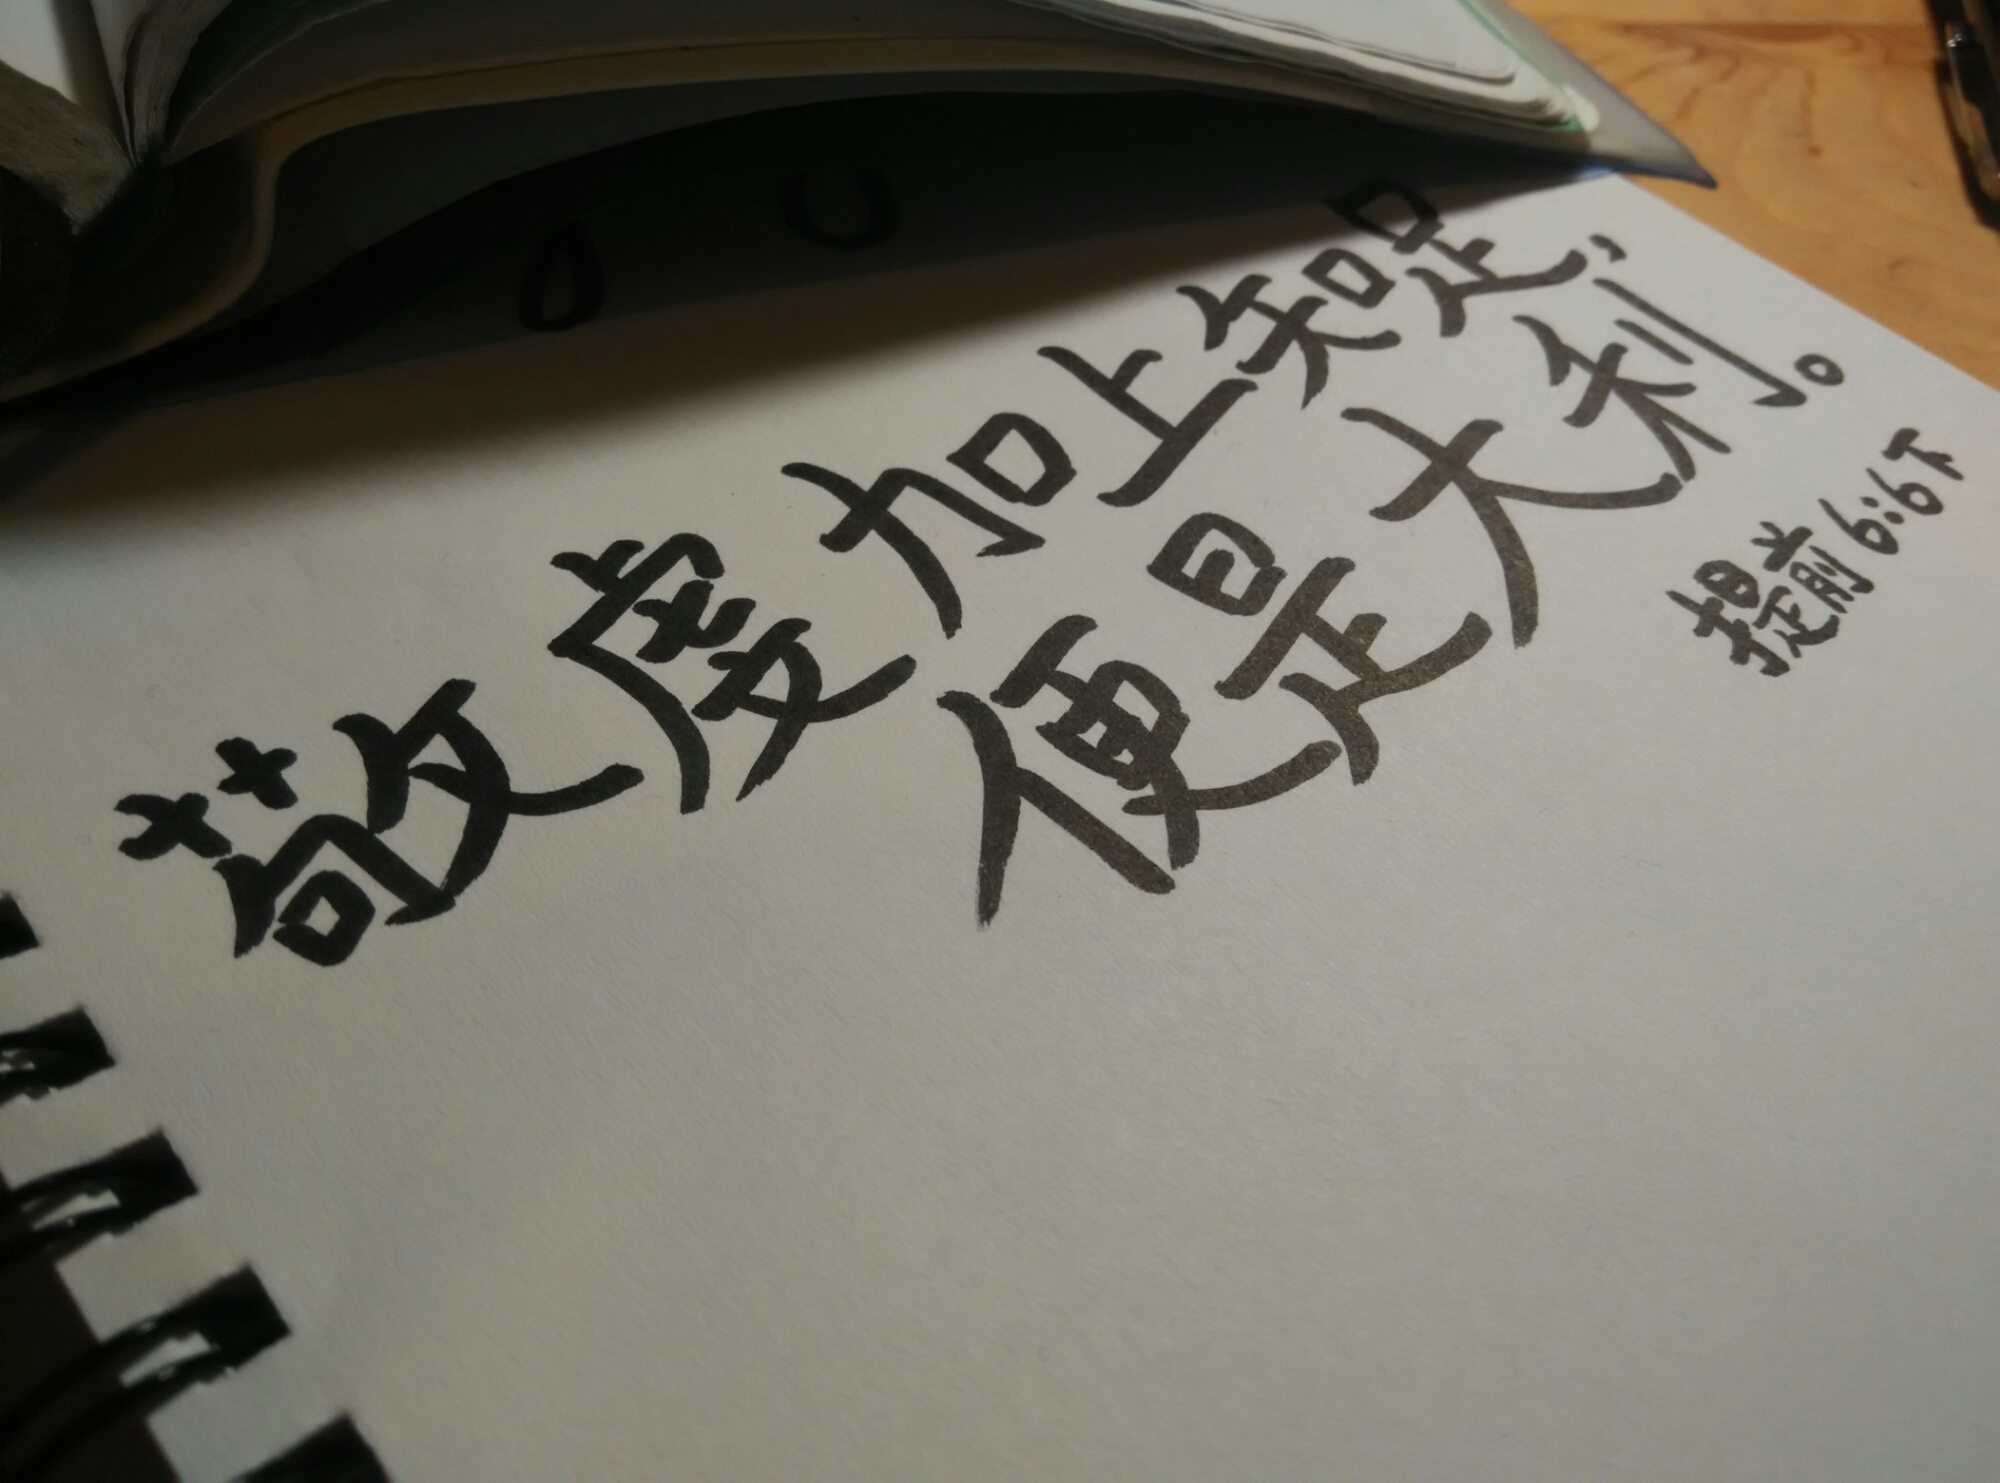 敬虔加上知足，
便是大利。
提前6:6下